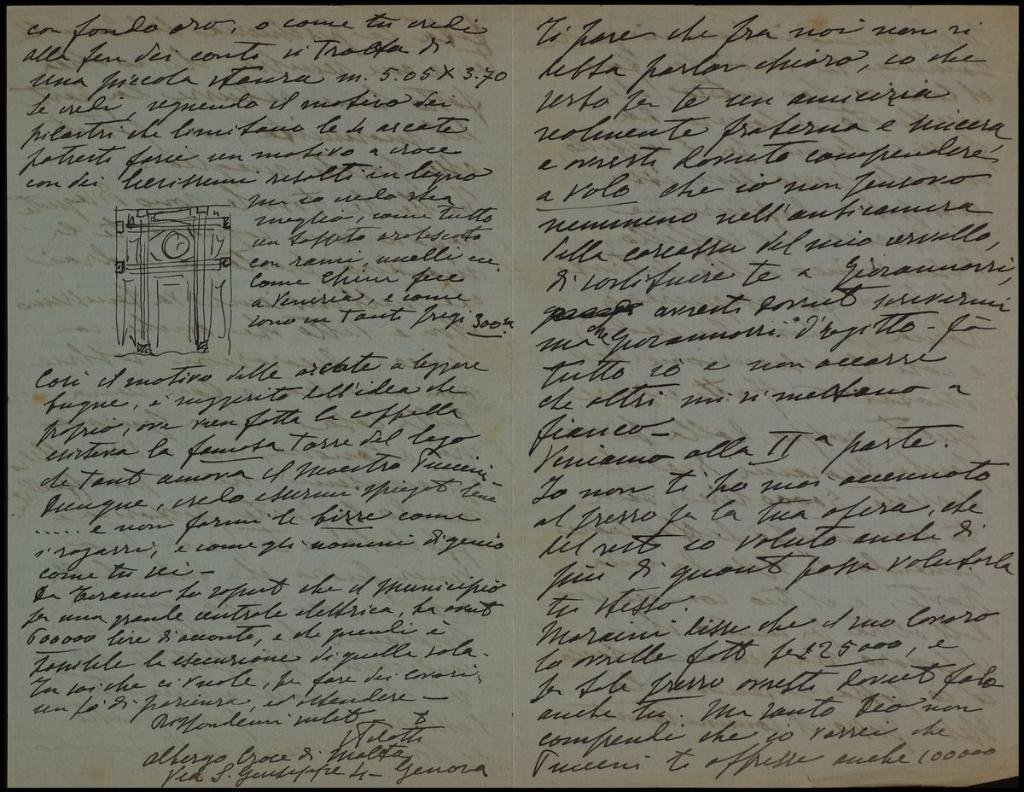 con fondo oro, o come tu credi
alla fin dei conti si tratta di
una piccola stanza m. 5.05 x 3.70
Se credi, seguendo il motivo dei
pilastri che limitano le 4 arcate
potresti farie un motivo a croce
con dei leggerissimi risalti in legno
ma io credo stia
meglio, come tutto
un soffitto arabescato
con rami, uccelli ecc.
Come Chini fece
a Venezia, e come
sono in tanti fregi 300.
Così il motivo delle arcate a leggere
bugne, è suggerito dall'idea che
proprio, ove vien fatta la cappella
esisteva la famosa torre del lago
che tant' amava il Maestro Puccini.
Dunque, credo essermi spiegato bene
..... e non farmi le bizze come
i ragazzi, e come gli uomini di genio
come tu sei –
Da Teramo ho saputo che il Municipio
per una grande centrale elettrica, ha avuto
600000 lire d'acconto, e che quindi è
fattibile la esecuzione di quella sala.
Tu sai che ci vuole, per fare dei lavori,
un pò di pazienza, ed attendere –
Rispondemi subito
VPilotti
Albergo Croce di Malta
Via S. Giuseppe 4 – Genova
Ti pare che fra noi non si
debba parlar chiaro, io che
serbo per te un amicizia
realmente fraterna e sincera,
e avresti dovuto comprendere,
a volo che io non pensavo
nemmeno nell'anticamera
della carcassa del mio cervello,
di sostituire te a Giovannozzi,
avresti dovuto scrivermi
ma che Giovannozzi d'egitto – fà
tutto io e non occorre
che altri mi si mettano a
fianco –
Veniamo alla IIª parte.
Io non ti ho mai accennato
al prezzo per la tua opera, che
del resto io valuto anche di
più di quanto possa valutarla
tu stesso.
Maraini disse che il suo lavoro
lo avrebbe fatto per £ 25000, e
per tale prezzo avresti dovuto farlo
anche tu. Ma santo Dio non
comprendi che io vorrei che
Puccini ti offrisse anche 100000